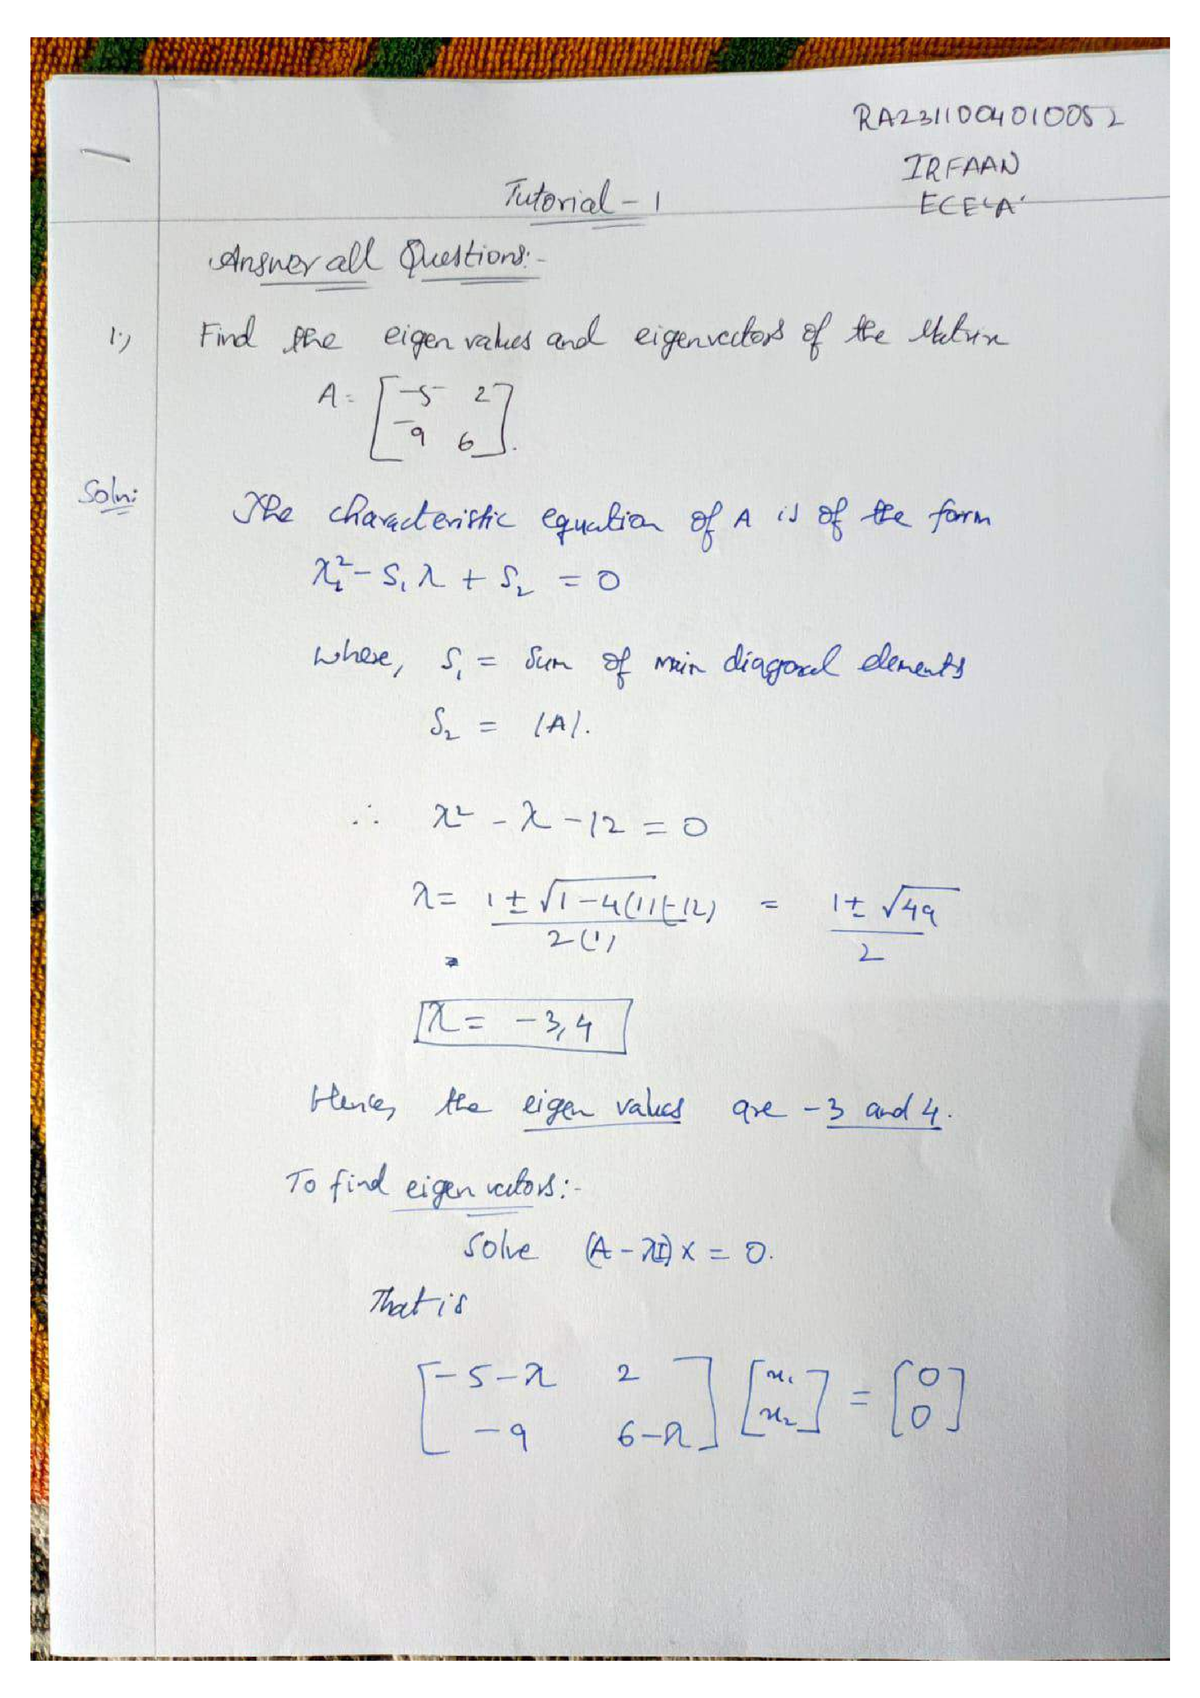 RA2311004010052
IRFAAN
ECE 'A'
Tutorial - 1
Answer all Questions:-
1.) Find the eigen values and eigenvectors of the Matrix
A = [-5 2
-9 6].
Soln:
The characteristic equation of A is of the form
λ² - S₁ λ + S₂ = 0
where, S₁ = Sum of main diagonal elements
S₂ = |A|.
∴ λ² - λ - 12 = 0
λ = 1 ± √1-4(1)(-12) / 2(1) = 1 ± √49 / 2
λ = -3, 4
Hence, the eigen values are -3 and 4.
To find eigen vectors:-
Solve (A - λI) X = 0.
That is
[-5-λ 2
-9 6-λ] [x₁
x₂] = [0
0]